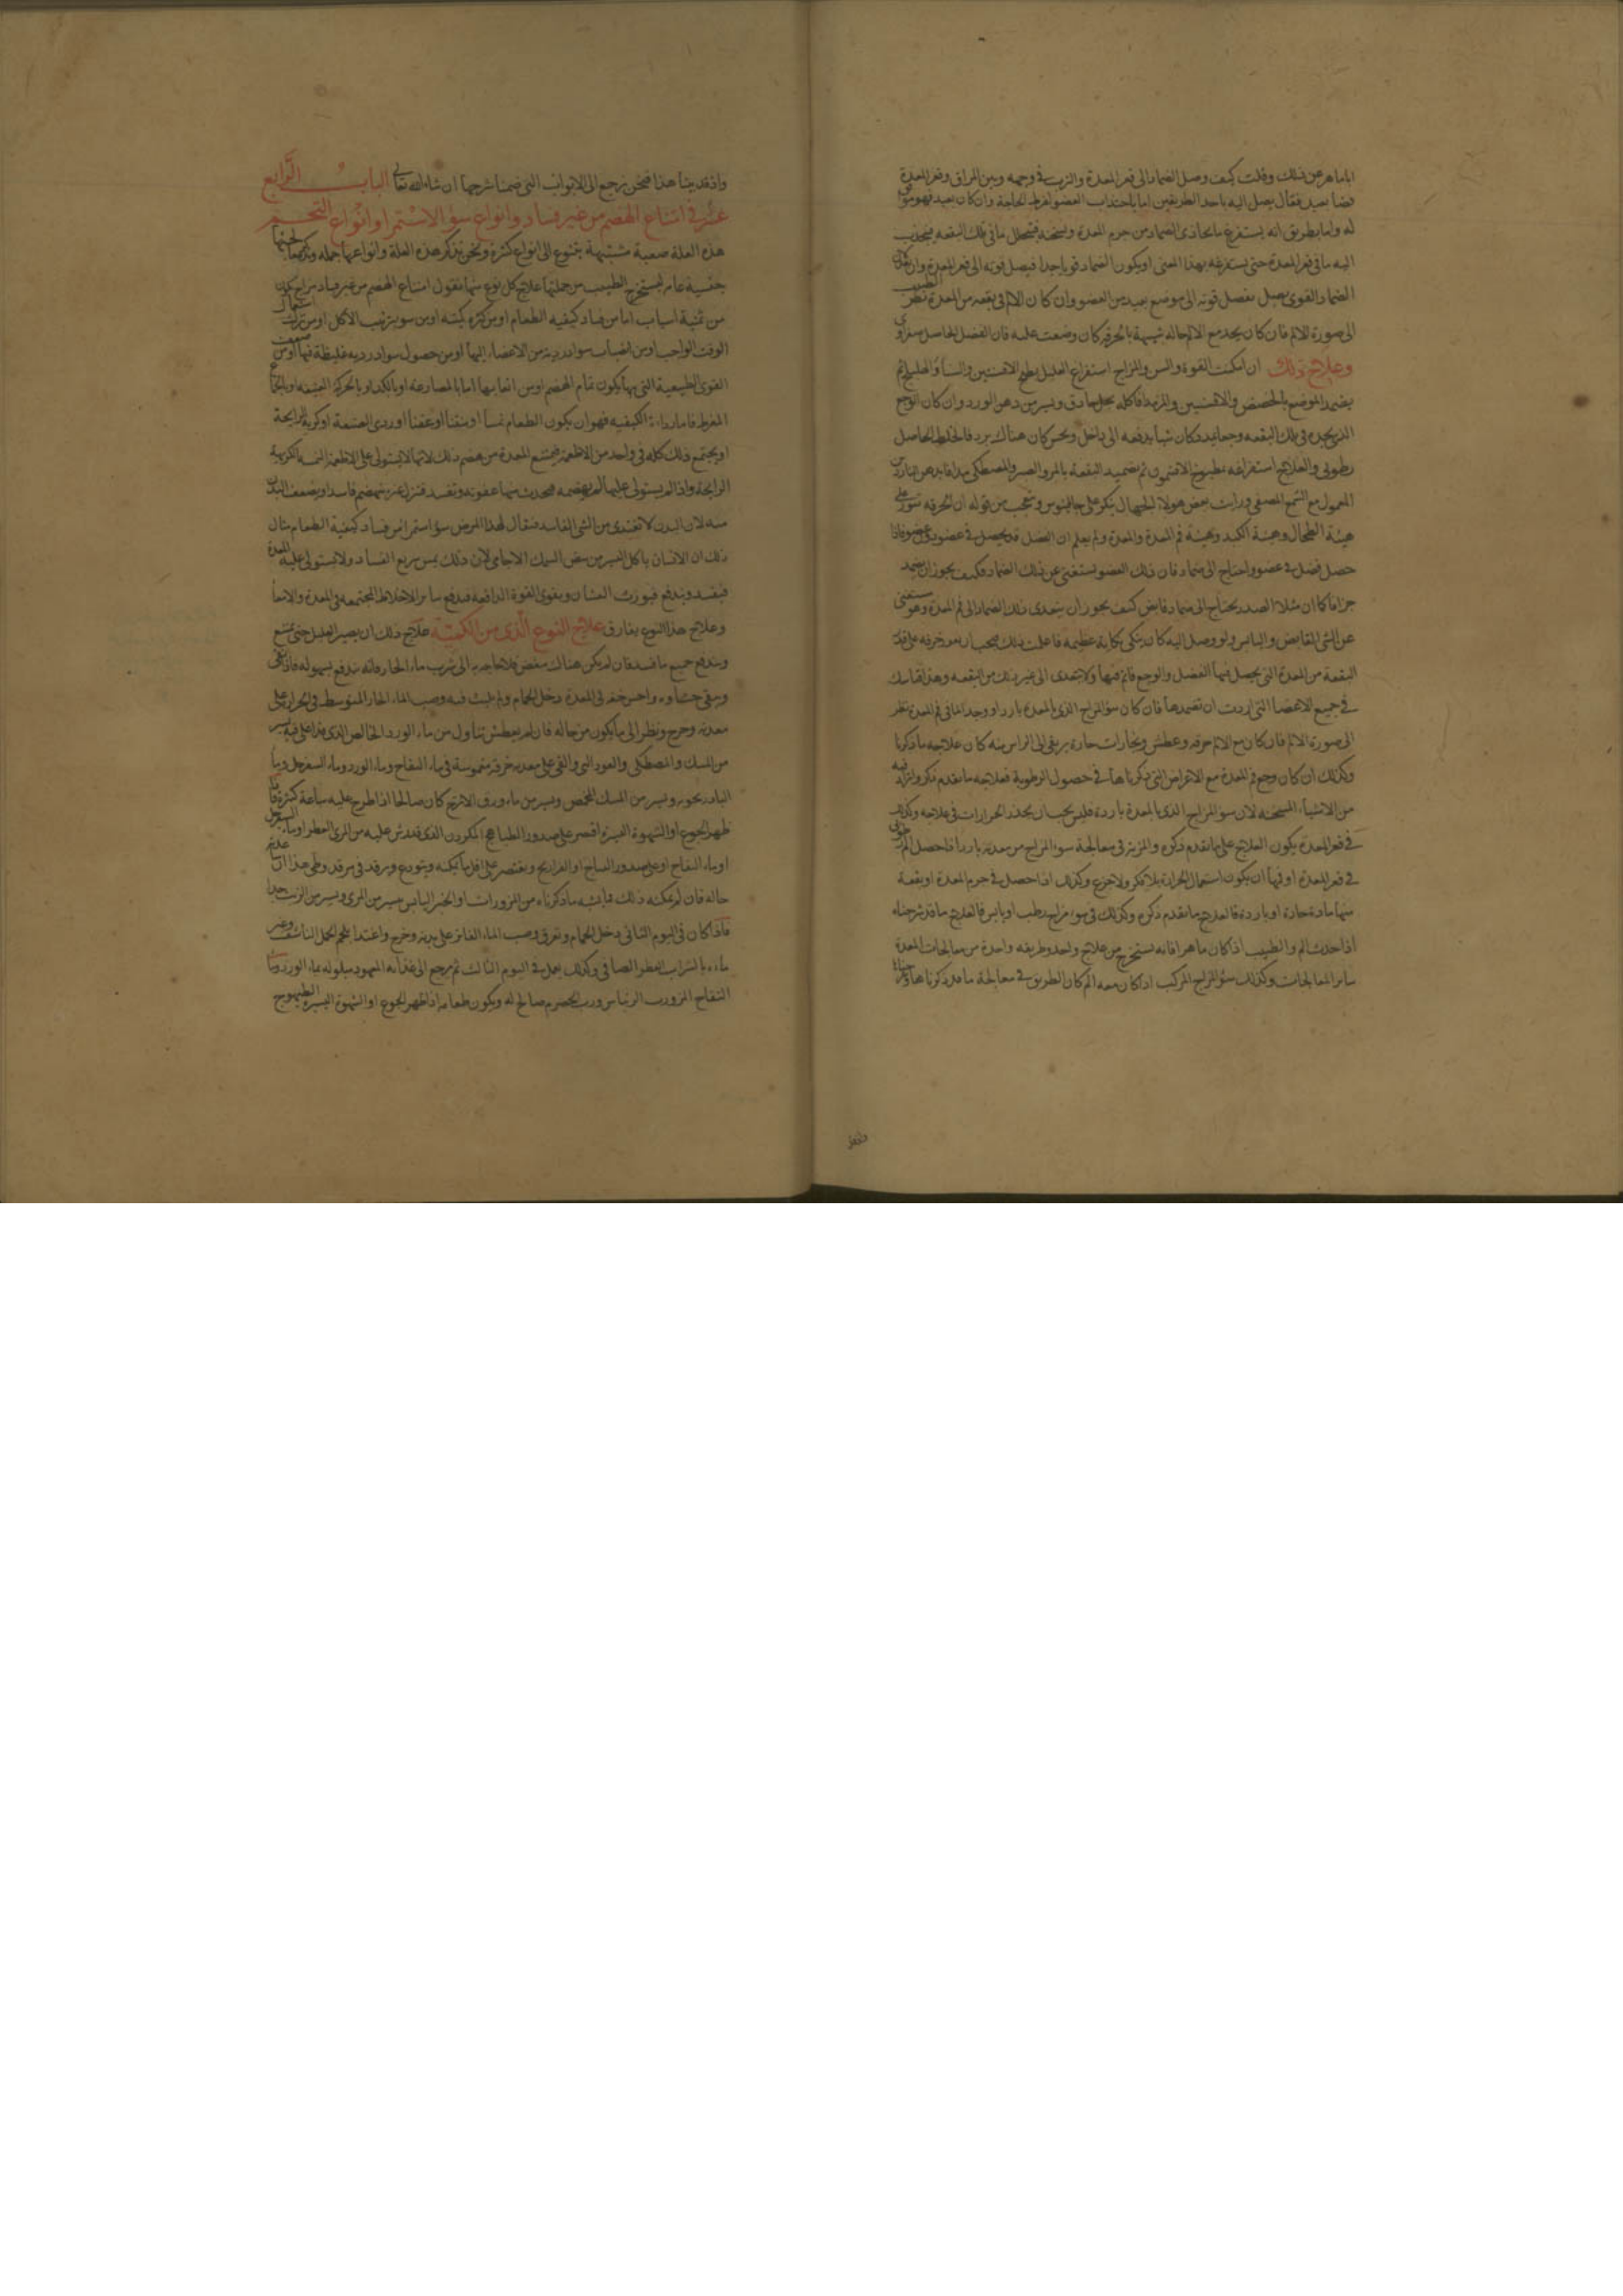 اباماهر عن ذلك وقلت كيف وصل الضماد الى قعر المعدة والترب في وجهه وبين المراق وقعر المعدة
فضا بعيد فقال يصل اليه باحد الطريقين اما باجتذاب العضو لفرط الحاجة وان كان بعيد فهو موافق
له واما بطريق انه يستفرغ ما يحاذي الضماد من جرم المعدة ويسخنه فيتحلل ما في تلك البقعه فينجذب
اليه ما في قعر المعدة حتى يستفرغه بهذا المعنى او يكون الضماد قويا جدا فيصل قوته الى قعر المعدة وان كان
الضماد القوى يصل بفضل قوته الى موضع بعيد من العضو وان كان الالم في بقعه من المعدة نظر الطبيب
الى صورة الالم فان كان يجد مع الالم حاله شبيهة بالحرقه كان وضعت عليه فان الفضل الحاصل صفراوي
وعلاج ذلك ان امكنت القوة والسن والمزاج استفراغ العليل بطبخ الافسنتين والسنا والهليلج ثم
يضمد الموضع بالحضض والافسنتين والمر هذا كله بخل حاذق ويسير من دهن الورد وان كان الوجع
الذي يجده في تلك البقعه وجعا تمدد وكان شيا يدفعه الى داخل ويحس كان هناك برد فالخلط الحاصل
رطوبي والعلاج استفراغه بطبوخ الافتيمون ثم تضميد البقعة بالمر والصبر والمصطكى مدافا بدهن الناردين
المعمول مع الشمع المصفى ورايت بعض هولاء الجهال ينكر على جالينوس ويتعجب من قوله ان الحرقه تنور على
هيئة الطحال وهيئة الكبد وهيئة فم المعدة والمعدة ولم يعلم ان الفضل قد يحصل في عضو دون عضو فاذا
حصل فضل في عضو واحتاج الى ضماد فان ذلك العضو يستغنى عن ذلك الضماد فكيف يجوز ان يضمد
جزافا كما ان مثلا الصدر يحتاج الى ضماد قابض كيف يجوز ان يتعدى ذلك الضماد الى فم المعدة وهو مستغنى
عن الشى القابض والياس ولو وصل اليه كان ينكى نكاية عظيمه فاعلمت ذلك فيجب ان يقور خرقه على قدر
البقعة من المعدة التي يحصل فيها الفضل والوجع قائم فيها ولا يتعدى الى غير ذلك من البقعه وهذا قياسك
في جميع الاعضا التي اردت ان تضمدها فان كان سو المزاج الذي بالمعدة بارد او وجد الما في فم المعدة نظر
الى صورة الالم فان كان مع الالم حرقه وعطش وبخارات حارة يرتقى الى الراس منه كان علاجه ما ذكرنا
وكذلك ان كان وجع فم المعدة مع الاعراض التي ذكرناها في حصول الرطوبة فعلاجه ما تقدم ذكره وليزاد فيه
من الاشياء المسخنه لان سو المزاج الذي بالمعدة باردة فليس يجب ان يحذر الحرارات في علاجه وكذلك
في قعر المعدة يكون العلاج على ما تقدم ذكره والمزيد في معالجة سوء المزاج من معدته بارد اذا حصل الم
في قعر المعدة او فيها ان يكون استعمال الحرارة بلا تفكر ولا جزع وكذلك اذا حصل في جرم المعدة او بقعة
منها مادة حارة او باردة فالعلاج ما تقدم ذكره وكذلك في سوء مزاج رطب او يابس فالعلاج ما قد شرحناه
اذا حدث الم والطبيب اذا كان ماهرا فانه يستخرج من علاج واحد وطريقه واحدة من معالجات المعدة
ساير المعالجات وكذلك سو المزاج المركب اذا كان معه الم كان الطريق في معالجة ما قد ذكرناها
واذ قد
واذ قد بينا هذا فنحن نرجع الى الابواب التي ضمنا شرحها ان شاء الله تعالى الباب الرابع
عشر في امتناع الهضم من غير فساد وانواع سؤ الاستمرا وانواع التخم
هذه العلة صعبة مشتبهة يتنوع الى انواع كثيرة ونحن نذكر هذه العلة وانواعها جملة ونذكر علاجها
جنسية عامه ليستخرج الطبيب من جملتها علاج كل نوع منها نقول امتناع الهضم من غير فساد مزاج يكون
من ثمنية اسباب اما من فساد كيفيه الطعام او من كثره كميته او من سو ترتيب الاكل او من ترك استعمال
الوقت الواجب او من انصباب مواد رديه من الاعضاء اليها او من حصول مواد رديه غليظة فيها او من ضعف
القوى الطبيعية التي بها يكون تمام الهضم او من اتعابها اما بالمصارعه او بالكد او بالحركة العنيفه او بالجماع
المفرط فاما رداءة الكيفيه فهو ان يكون الطعام نمسا او منتنا او عفنا او ردى الصنعة او كريه الرايحة
او يجتمع ذلك كله في واحد من الاطعمة فيمتنع المعدة من هضم ذلك لانها لا يستولى على الاطعمة النمسه الكريهة
الرايحة واذا لم يستولى عليها لم يهضمه فيحدث منها عفونه وتفسد فتنزل غير منهضم فاسدا ويضعف البدن
منه لان البدن لا تغتذى من الشى الفاسد فيقال لهذا المرض سؤ استمرا من فساد كيفية الطعام مثال
ذلك ان الانسان ياكل اليسير من بعض السمك الاجامى لان ذلك نمس سريع الفساد ولا يستولى عليه المعدة
فيفسد ويندفع فيورث الغشيان ويقوى القوة الدافعه فيدفع ساير الاخلاط المجتمعه في المعدة والامعا
وعلاج هذا النوع يفارق علاج النوع الذي من الكمية علاج ذلك ان يصبر العليل حتى يمتنع
ويندفع جميع ما فسد فان لم يكن هناك مغص فلا حاجه به الى شرب ماء الحار فانه يندفع بسهوله فاذا نقى
وبقى جشاوه واحس خفه في المعدة دخل الحمام ولم يلبث فيه وصب الماء الحار المتوسط في الحرارة على
معدته وخرج ونظر الى ما يكون من حاله فان لم يعطش تناول من ماء الورد الخالص الذي قد اغلى فيه يسير
من المسك والمصطكى والعود النى والقى على معدته خرقه مغموسة في ماء التفاح وماء الورد وماء السفرجل وماء
البادرنجويه ويسير من المسك المحمص ويسير من ماء ورق الاترنج كان صالحا اذا طرح عليه ساعة كثيرة فاذا
ظهر الجوع او الشهوة اليسيرة اقتصر على صدور الطياهيج المكردن الذي قد رش عليه من المرى العطر او ماء السفرجل
او ماء التفاح او على صدور الدراج او الفراريج ويقتصر على اقل ما يمكنه ويتودع ويرقد في مرقد وطى هذا الن علاج
حاله فان لم يمكنه ذلك فبما يشبه ما ذكرناه من المزورات او الخبز اليابس بيسير من المرى ويسير من الزيت جيدا
فاذا كان في اليوم الثاني دخل الحمام وتعرق وصب الماء الفاتر على بدنه وخرج واغتذا بلحم الحمل الناشف وغير
ماءه بالشراب العطر الصافي وكذلك يعمل في اليوم الثالث ثم يرجع الى غذائه المعهود مبلوله بماء الورد وماء
التفاح المز ورب الريباس ورب الحصرم صالح له ويكون طعامه اذا ظهر الجوع او الشهوة اليسيرة الطيهوج